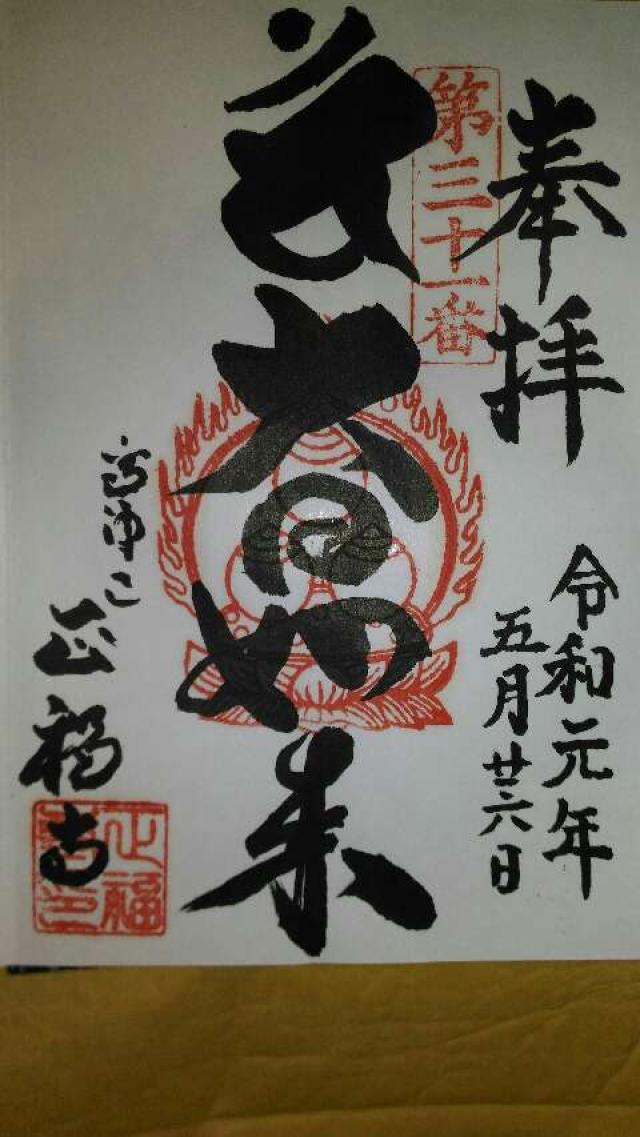 奉拝
第三十一番
令和元年
五月廿六日
大日如来
正福寺
正福寺印